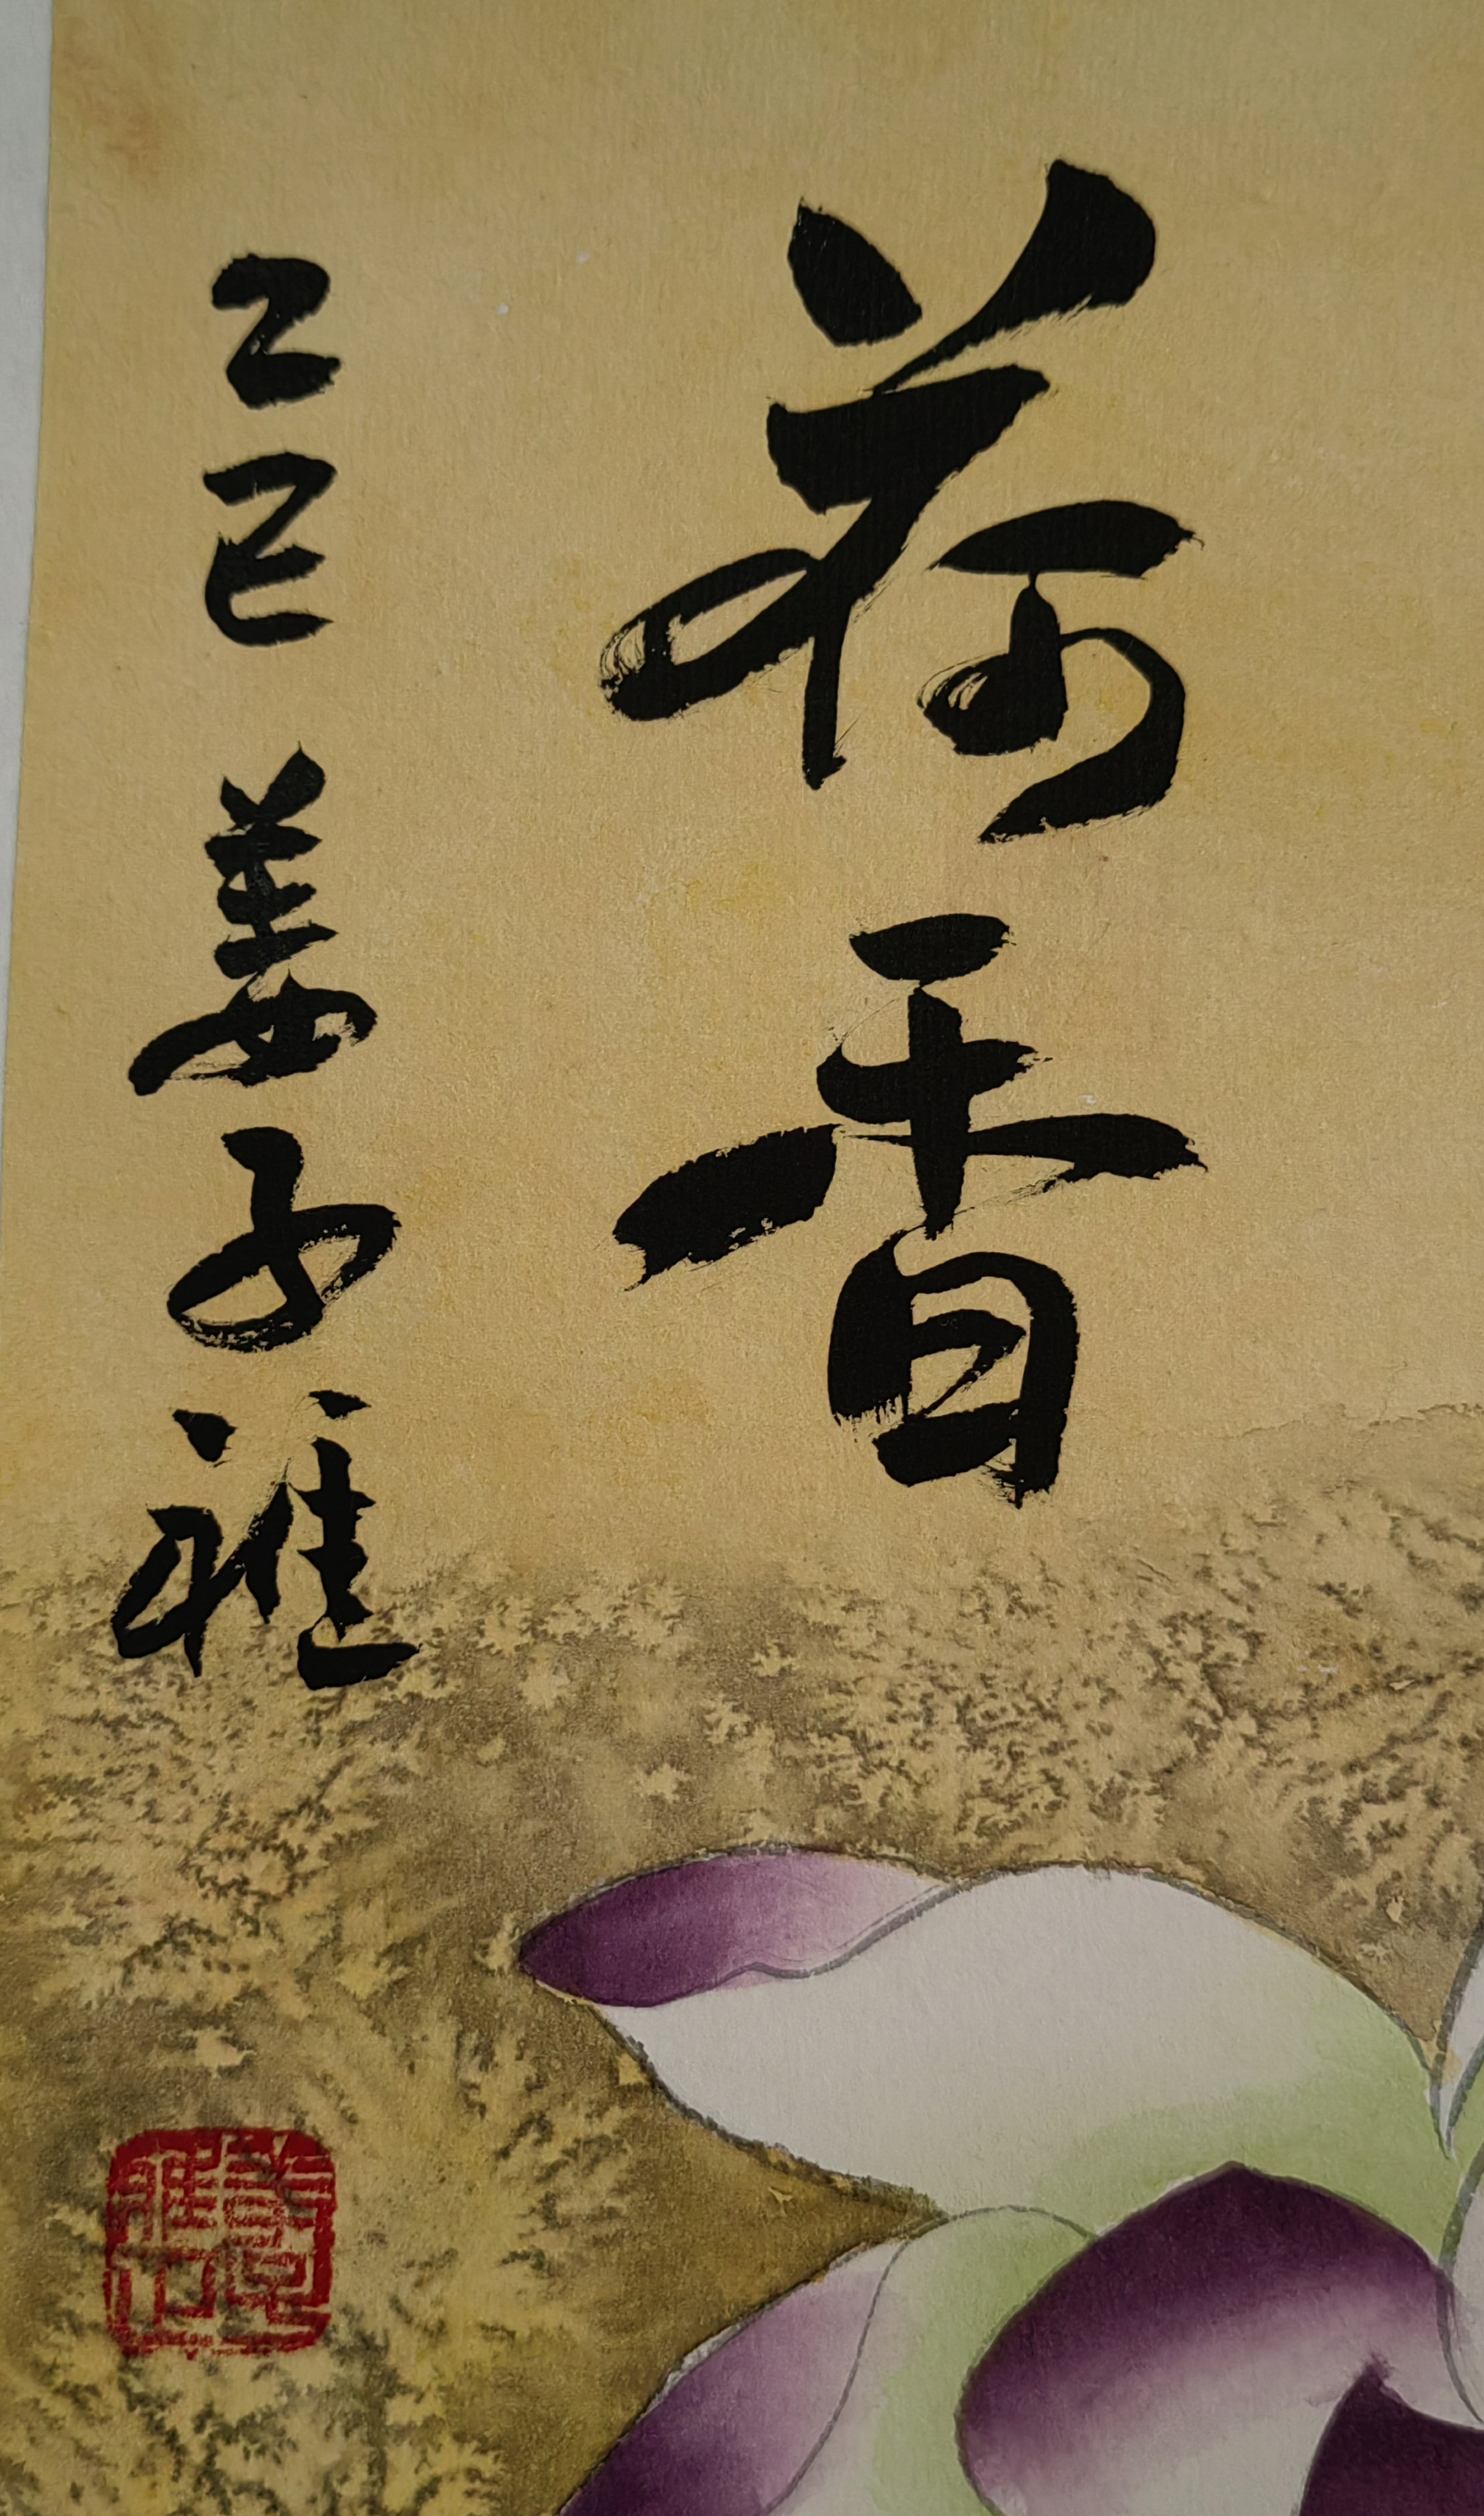 荷香
乙巳 姜子雅